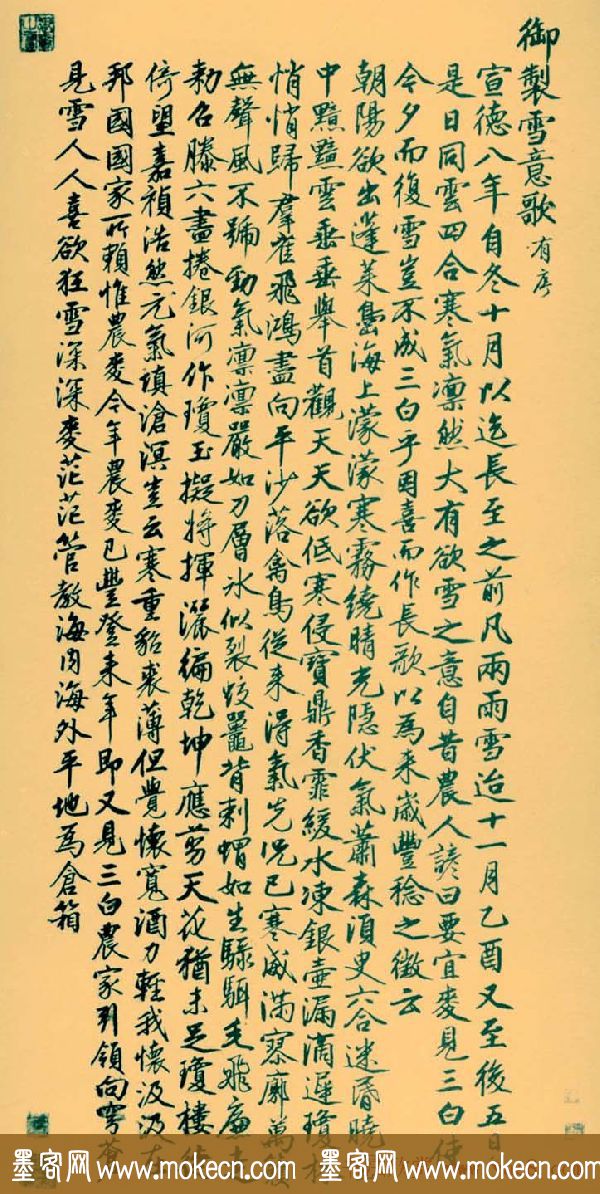 御製雪意歌 有序
宣德八年自冬十月以迄長至之前凡兩雨雪迨十一月乙酉又至後五日
是日同雲四合寒氣凛然大有欲雪之意自昔農人諺曰要宜麥見三白使
今夕而復雪豈不成三白乎因喜而作長歌以為來歲豐稔之徵云
朝陽欲出蓬萊島海上濛濛寒霧繞晴光隱伏氣蕭森須臾六合迷昏曉
中黯黯雲垂垂舉首觀天天欲低寒侵寶鼎香霏緩水凍銀壺漏滴遲瓊林
悄悄歸群雀飛鴻盡向平沙落禽鳥從來得氣先況已寒威滿寥廓萬竅
無聲風不號勁氣凛凛嚴如刀層冰似裂蛟鼉背刺蝟如生騄駬毛飛廉
勅召滕六盡捲銀河作瓊玉擬將揮灑徧乾坤應剪天花猶未足瓊樓
停望嘉禎浩然元氣填滄溟豈云寒重貂裘薄但覺懷寬酒力輕我懷汲汲在
邦國國家所賴惟農麥今年農麥已豐登來年即又見三白農家引領向穹蒼
見雪人人喜欲狂雪深深麥茫茫管教海內海外平地為倉箱
墨客网 www.mokecn.com 墨客网 www.mokecn.com